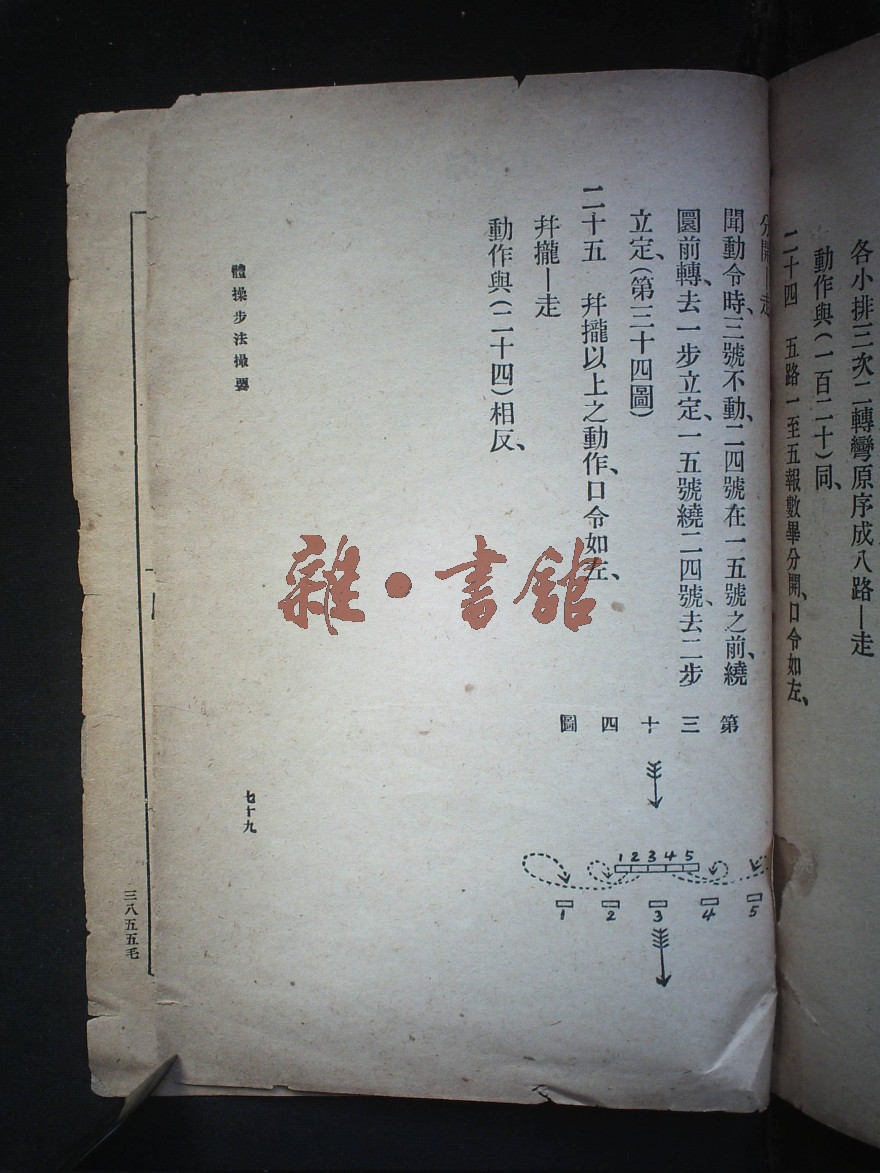 各小排三次二轉彎原序成八路—走
動作與(一百二十)同、
二十四　五路一至五報數畢分開、口令如左、
分開—走
聞動令時、三號不動、二四號在一五號之前、繞
圜前轉、去一步立定、一五號繞二四號、去二步
立定、(第三十四圖)
二十五　幷攏以上之動作、口令如左、
幷攏—走
動作與(二十四)相反、
第三十四圖
1 2 3 4 5
1 2 3 4 5
體操步法撮要
七十九
三八五五毛
雜·書館